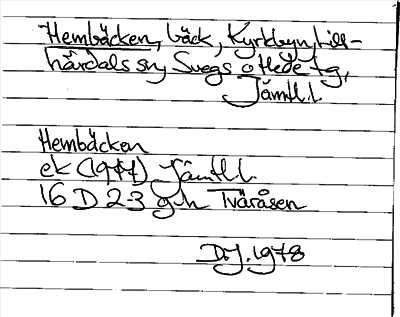 Hembäcken, bäck, Kyrkbyn, Lill-
härdals sn, Svegs o Hede tg,
Jämtl. l.
Hembäcken
ek (1977) Jämtl l.
16 D 2-3 g-h Tvåråsen
D.J. 1978